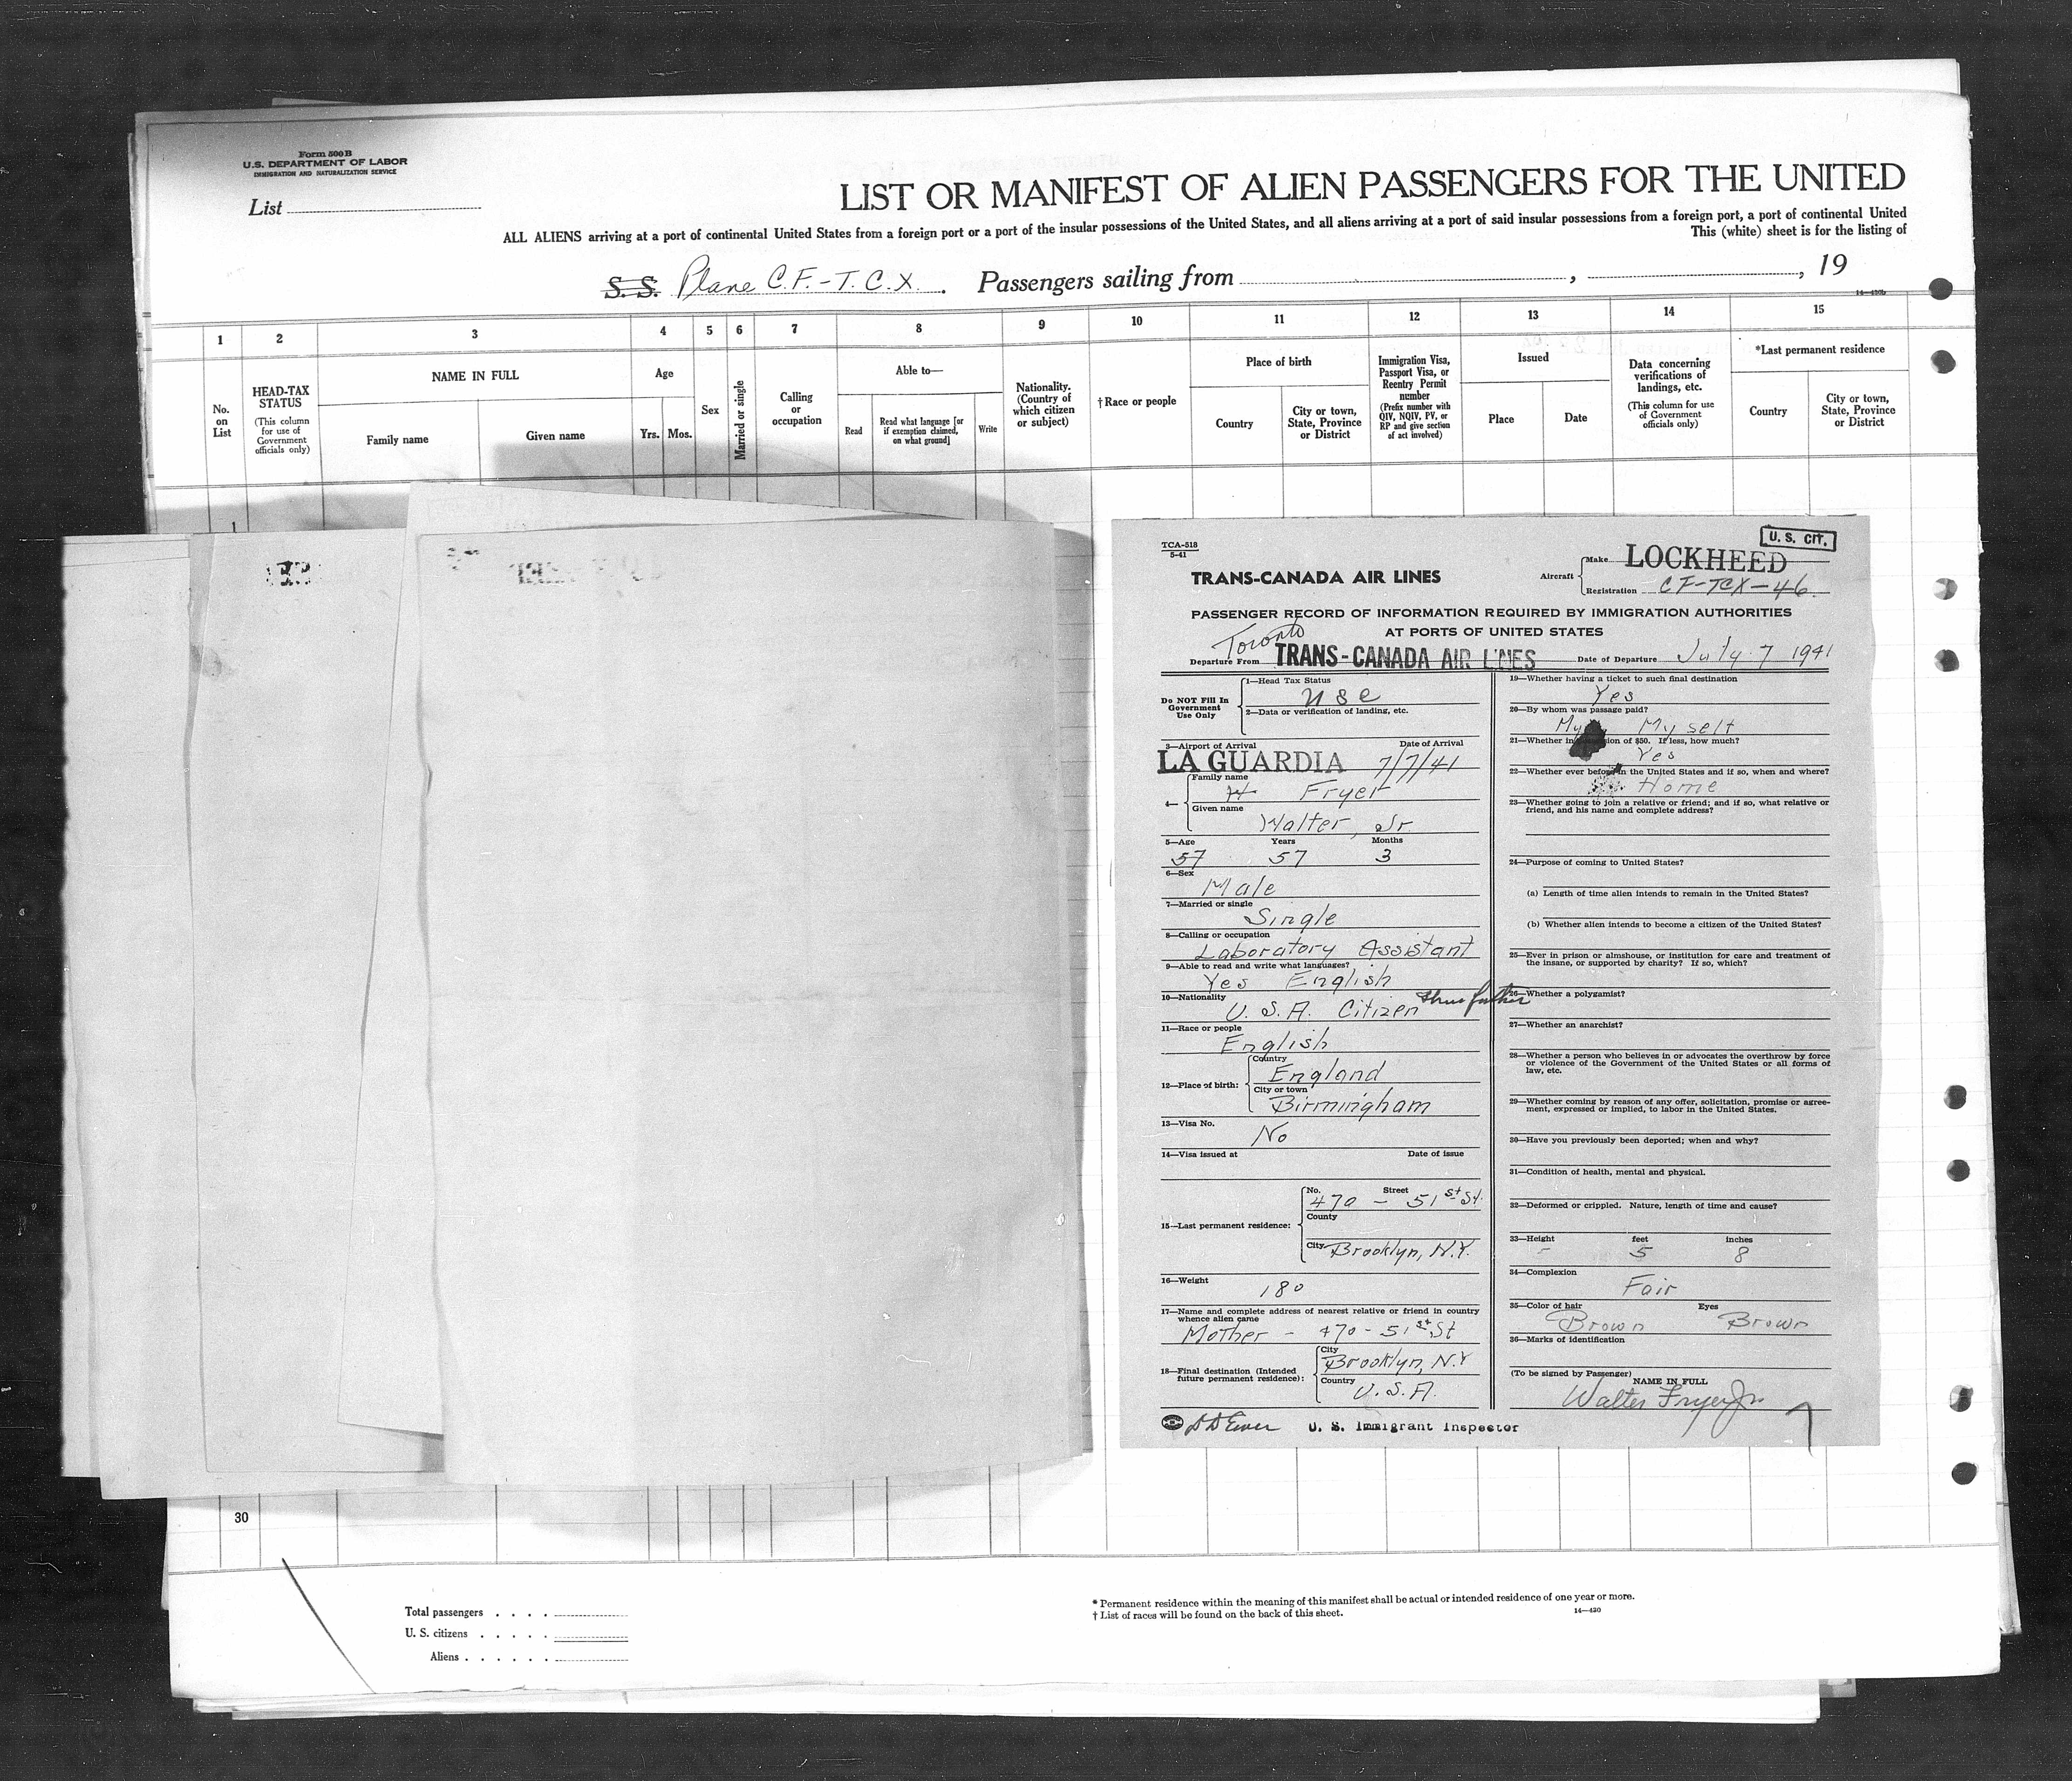 Form 500 B
U.S. DEPARTMENT OF LABOR
IMMIGRATION AND NATURALIZATION SERVICE
List
LIST OR MANIFEST OF ALIEN PASSENGERS FOR THE UNITED
ALL ALIENS arriving at a port of continental United States from a foreign port or a port of the insular possessions of the United States, and all aliens arriving at a port of said insular possessions from a foreign port, a port of continental United
This (white) sheet is for the listing of
S. S. Plane C.F.-T.C.X. Passengers sailing from , , 19
14—430b
1 2 3 4 5 6 7 8 9 10 11 12 13 14 15
No. on List
HEAD-TAX STATUS (This column for use of Government officials only)
NAME IN FULL
Family name Given name
Age
Yrs. Mos.
Sex
Married or single
Calling or occupation
Able to—
Read
Read what language [or if exemption claimed, on what ground]
Write
Nationality. (Country of which citizen or subject)
† Race or people
Place of birth
Country
City or town, State, Province or District
Immigration Visa, Passport Visa, or Reentry Permit number (Prefix number with QIV, NQIV, PV, or RP and give section of act involved)
Issued
Place Date
Data concerning verifications of landings, etc. (This column for use of Government officials only)
*Last permanent residence
Country
City or town, State, Province or District
1
TCA-518
5-41
U. S. CIT.
TRANS-CANADA AIR LINES
Aircraft Make LOCKHEED
Registration CF-TCX-46.
PASSENGER RECORD OF INFORMATION REQUIRED BY IMMIGRATION AUTHORITIES
AT PORTS OF UNITED STATES
Toronto
Departure From TRANS-CANADA AIR LINES Date of Departure July 7 1941
Do NOT Fill In Government Use Only
1—Head Tax Status
USC
2—Data or verification of landing, etc.
3—Airport of Arrival Date of Arrival
LA GUARDIA 7/7/41
4—
Family name
W Fryer
Given name
Walter, Jr
5—Age Years Months
57 57 3
6—Sex
Male
7—Married or single
Single
8—Calling or occupation
Laboratory Assistant
9—Able to read and write what languages?
Yes English
10—Nationality
U.S.A. Citizen thru father
11—Race or people
English
12—Place of birth:
Country
England
City or town
Birmingham
13—Visa No.
No
14—Visa issued at Date of issue
15—Last permanent residence:
No. Street
470 - 51st St.
County
City Brooklyn, N.Y.
16—Weight
180
17—Name and complete address of nearest relative or friend in country
whence alien came
Mother - 470 - 51st St
18—Final destination (Intended
future permanent residence):
City
Brooklyn, N.Y
Country
U.S.A.
U. S. Immigrant Inspector
19—Whether having a ticket to such final destination
Yes
20—By whom was passage paid?
My Myself
21—Whether in ion of $50. If less, how much?
Yes
22—Whether ever before in the United States and if so, when and where?
Home
23—Whether going to join a relative or friend; and if so, what relative or
friend, and his name and complete address?
24—Purpose of coming to United States?
(a) Length of time alien intends to remain in the United States?
(b) Whether alien intends to become a citizen of the United States?
25—Ever in prison or almshouse, or institution for care and treatment of
the insane, or supported by charity? If so, which?
26—Whether a polygamist?
27—Whether an anarchist?
28—Whether a person who believes in or advocates the overthrow by force
or violence of the Government of the United States or all forms of
law, etc.
29—Whether coming by reason of any offer, solicitation, promise or agree-
ment, expressed or implied, to labor in the United States.
30—Have you previously been deported; when and why?
31—Condition of health, mental and physical.
32—Deformed or crippled. Nature, length of time and cause?
33—Height feet inches
- 5 8
34—Complexion
Fair
35—Color of hair Eyes
Brown Brown
36—Marks of identification
(To be signed by Passenger)
NAME IN FULL
Walter Fryer Jr
30
Total passengers
U. S. citizens
Aliens
* Permanent residence within the meaning of this manifest shall be actual or intended residence of one year or more.
† List of races will be found on the back of this sheet.
14—430